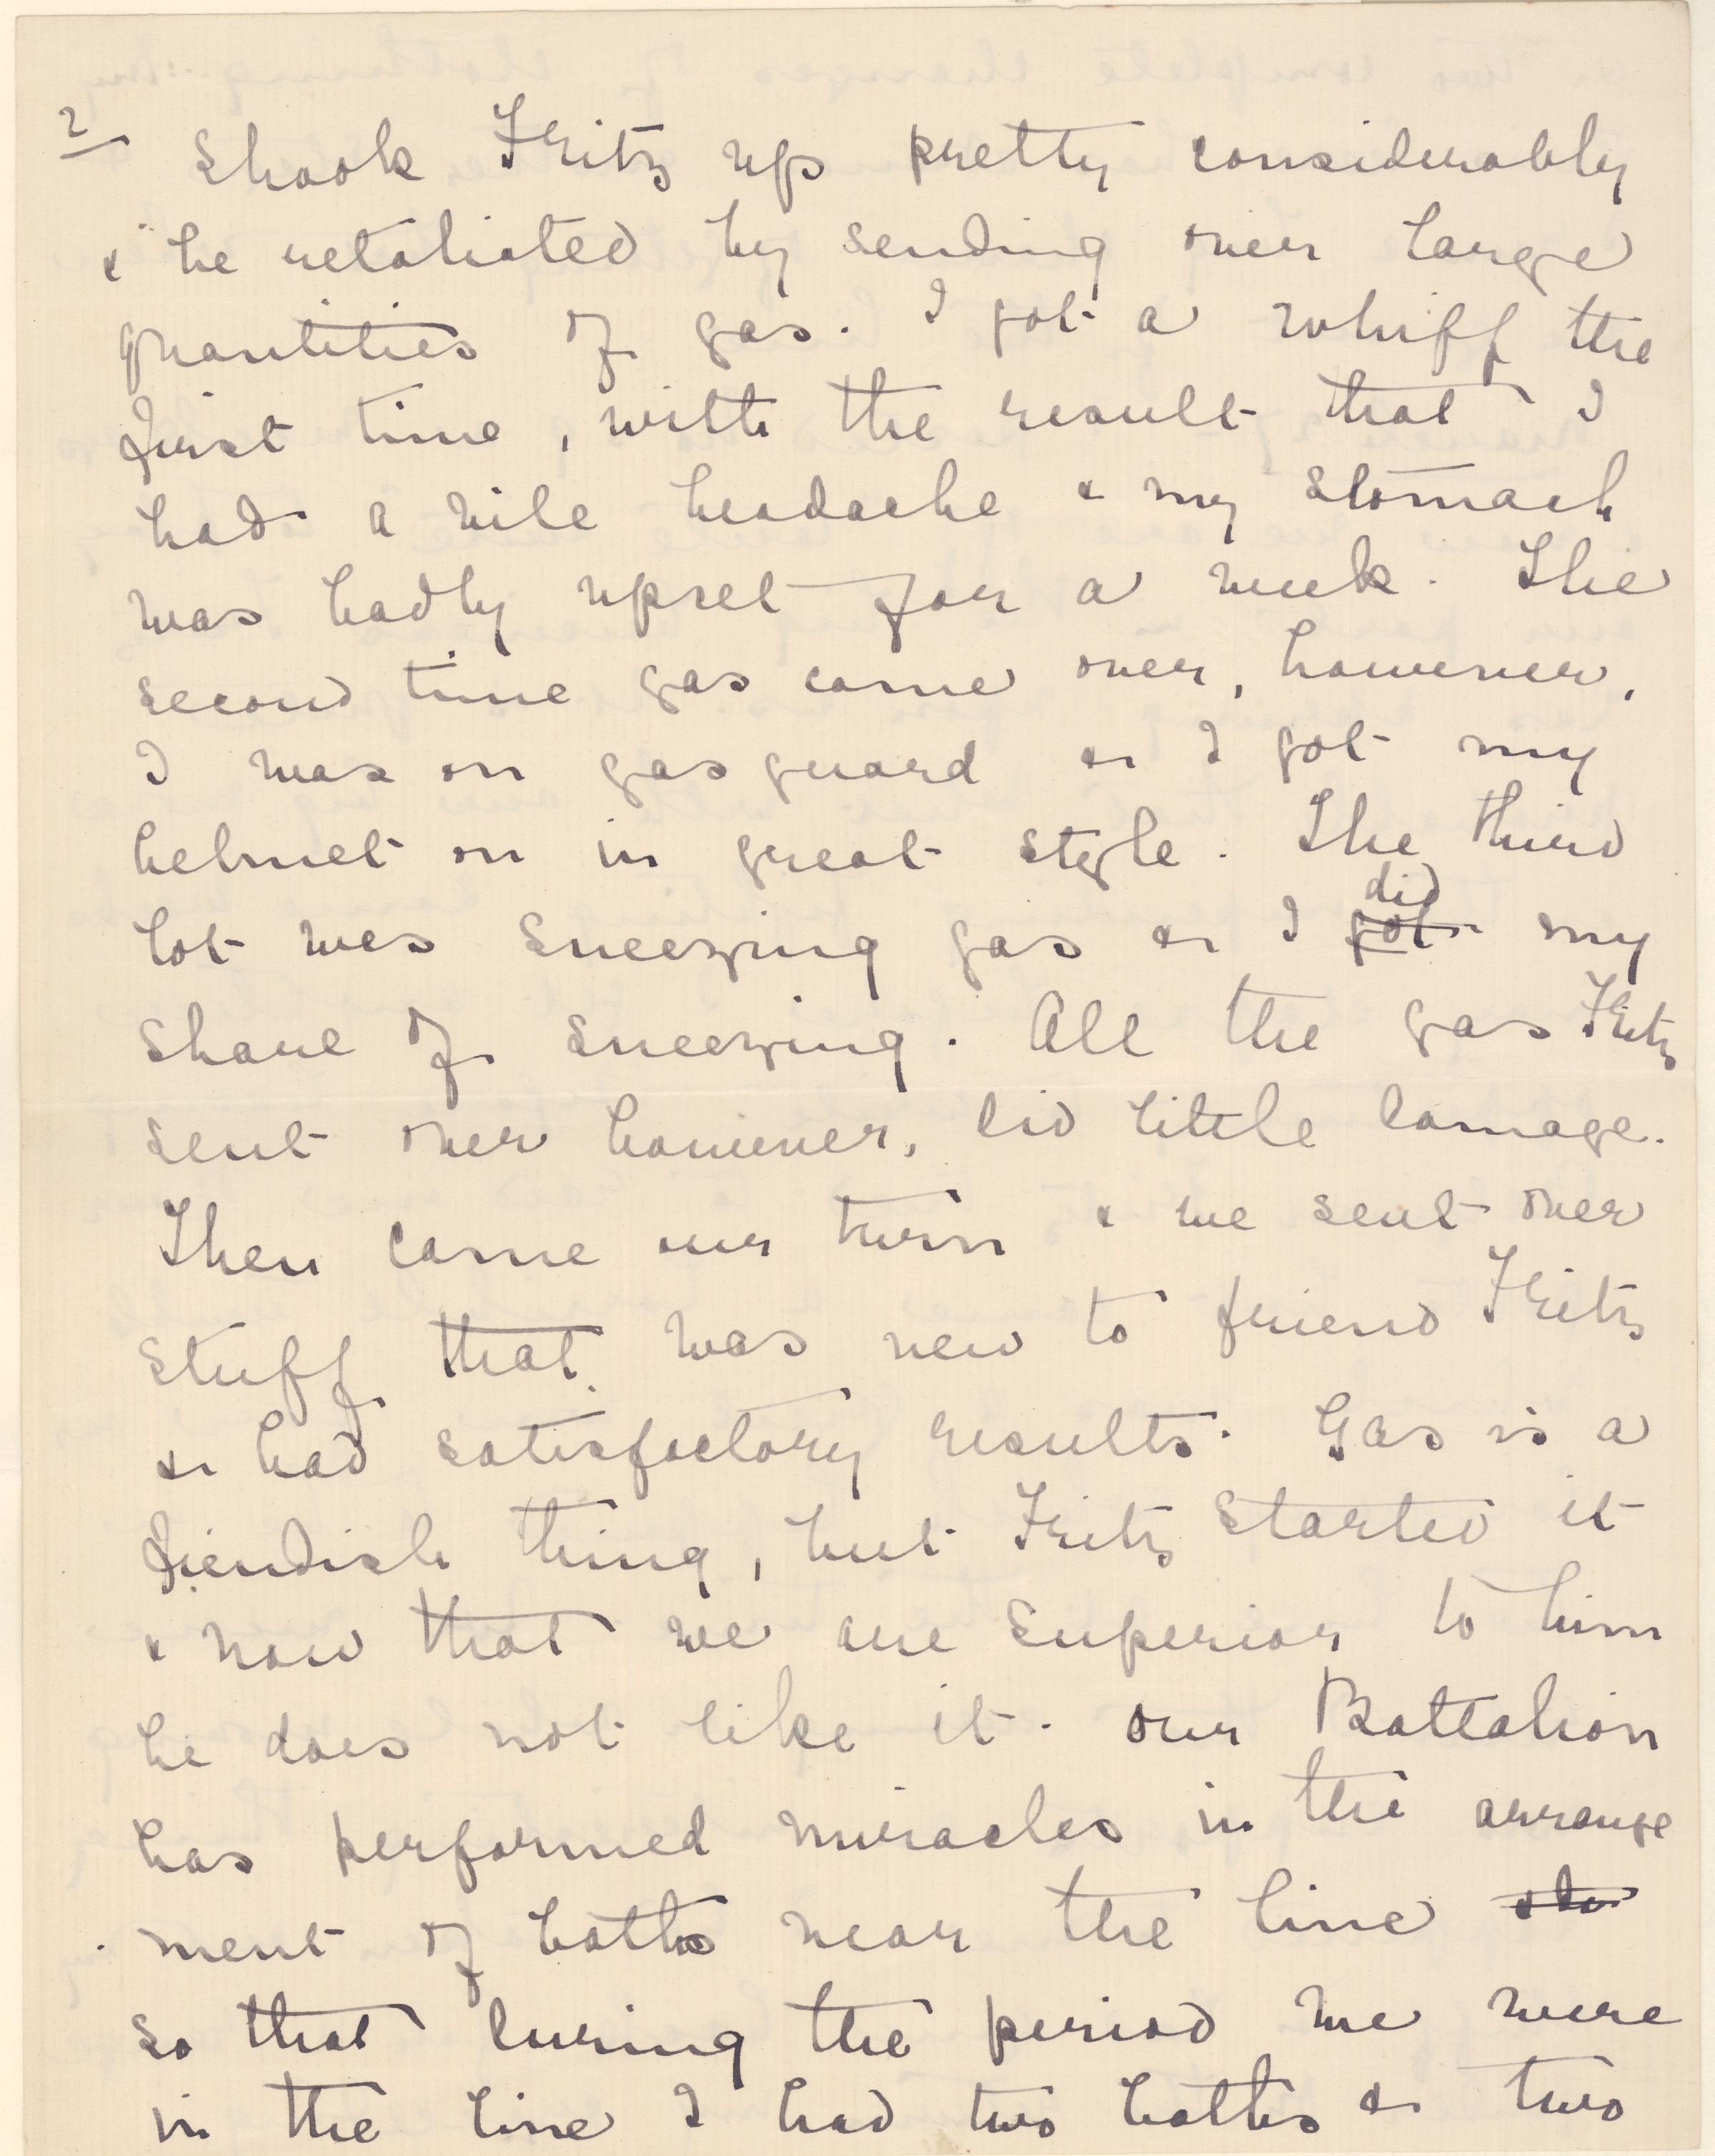 2
Shook Fritz up pretty considerably
& he retaliated by sending over large
quantities of gas. I got a whiff the
first time, with the result that I
had a vile headache & my stomach
was badly upset for a week. The
second time gas came over, however,
I was on gas guard & I got my
helmet on in great style. The third
lot was sneezing gas & I did got my
share of sneezing. All the gas Fritz
sent over however, did little damage.
Then came our turn & we sent over
stuff that was new to friend Fritz
& had satisfactory results. Gas is a
fiendish thing, but Fritz started it
& now that we are superior to him
he does not like it. Our Battalion
has performed miracles in the arrange
ment of baths near the line
so that during the period we were
in the line I had two baths & two